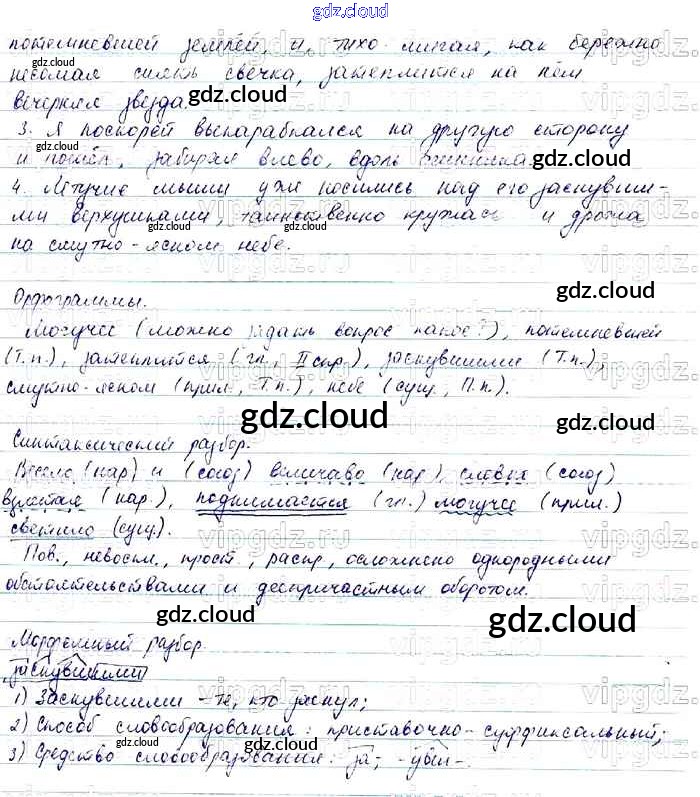 gdz.cloud
потемневшей землёй, и, тихо мигая, как бережно
несомая свечка, затеплится на нём
вечерняя звезда.
gdz.cloud
3. Я поскорей выкарабкался на другую сторону
и пошёл, забирая влево, вдоль осинника.
gdz.cloud
4. Летучие мыши уже носились над его заснувши-
ми верхушками, таинственно кружась и дрожа
gdz.cloud
на смутно-ясном небе.
Орфограммы.
gdz.cloud
Могучее (можно задать вопрос какое?), потемневшей
(Т.п.), затеплится (гл., II спр.), заснувшими (Т.п.),
смутно-ясном (прил., П.п.), небе (сущ., П.п.).
gdz.cloud
gdz.cloud
Синтаксический разбор.
Весело (нар) и (союз) величаво (нар), словно (союз)
взлетая (нар.), поднимается (гл.) могучее (прил.)
светило (сущ.).
gdz.cloud
Пов., невоскл., прост., распр., осложнено однородными
обстоятельствами и деепричастным оборотом.
gdz.cloud
gdz.cloud
Морфемный разбор
заснувшими
1) Заснувшими – те, кто заснул;
gdz.cloud
2) Способ словообразования: приставочно-суффиксальный;
gdz.cloud
3) Средство словообразования: за-, -увш-.
gdz.cloud